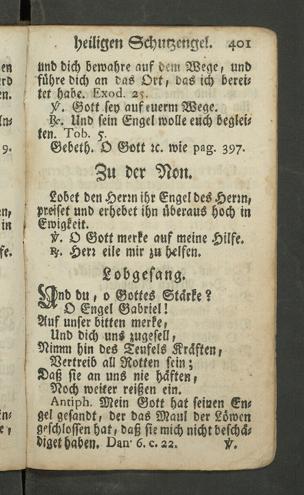 heiligen Schutzengel. 401
und dich bewahre auf dem Wege, und
führe dich an das Ort, das ich berei-
tet habe. Exod. 25.
℣. Gott sey auf euerm Wege.
℟. Und sein Engel wolle euch beglei-
ten. Tob. 5.
Gebeth. O Gott ꝛc. wie pag. 397.
Zu der Non.
Lobet den Herrn ihr Engel des Herrn,
preiset und erhebet ihn überaus hoch in
Ewigkeit.
℣. O Gott merke auf meine Hilfe.
℟. Herr eile mir zu helfen.
Lobgesang.
Und du, o Gottes Stärke?
O Engel Gabriel!
Auf unser bitten merke,
Und dich uns zugesell,
Nimm hin des Teufels Kräften,
Vertreib all Rotten sein;
Daß sie an uns nie häften,
Noch weiter reißen ein.
Antiph. Mein Gott hat seinen En-
gel gesandt, der das Maul der Löwen
geschlossen hat, daß sie mich nicht beschä-
diget haben. Dan. 6. c. 22. ℣.